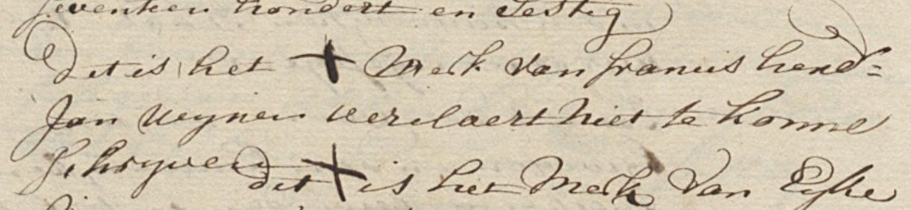 sevenhien hondert en sestig
dit is het + Merk van francis hend=
Jan Weynen verclaert niet te konne
schryven dit + is het Merk van